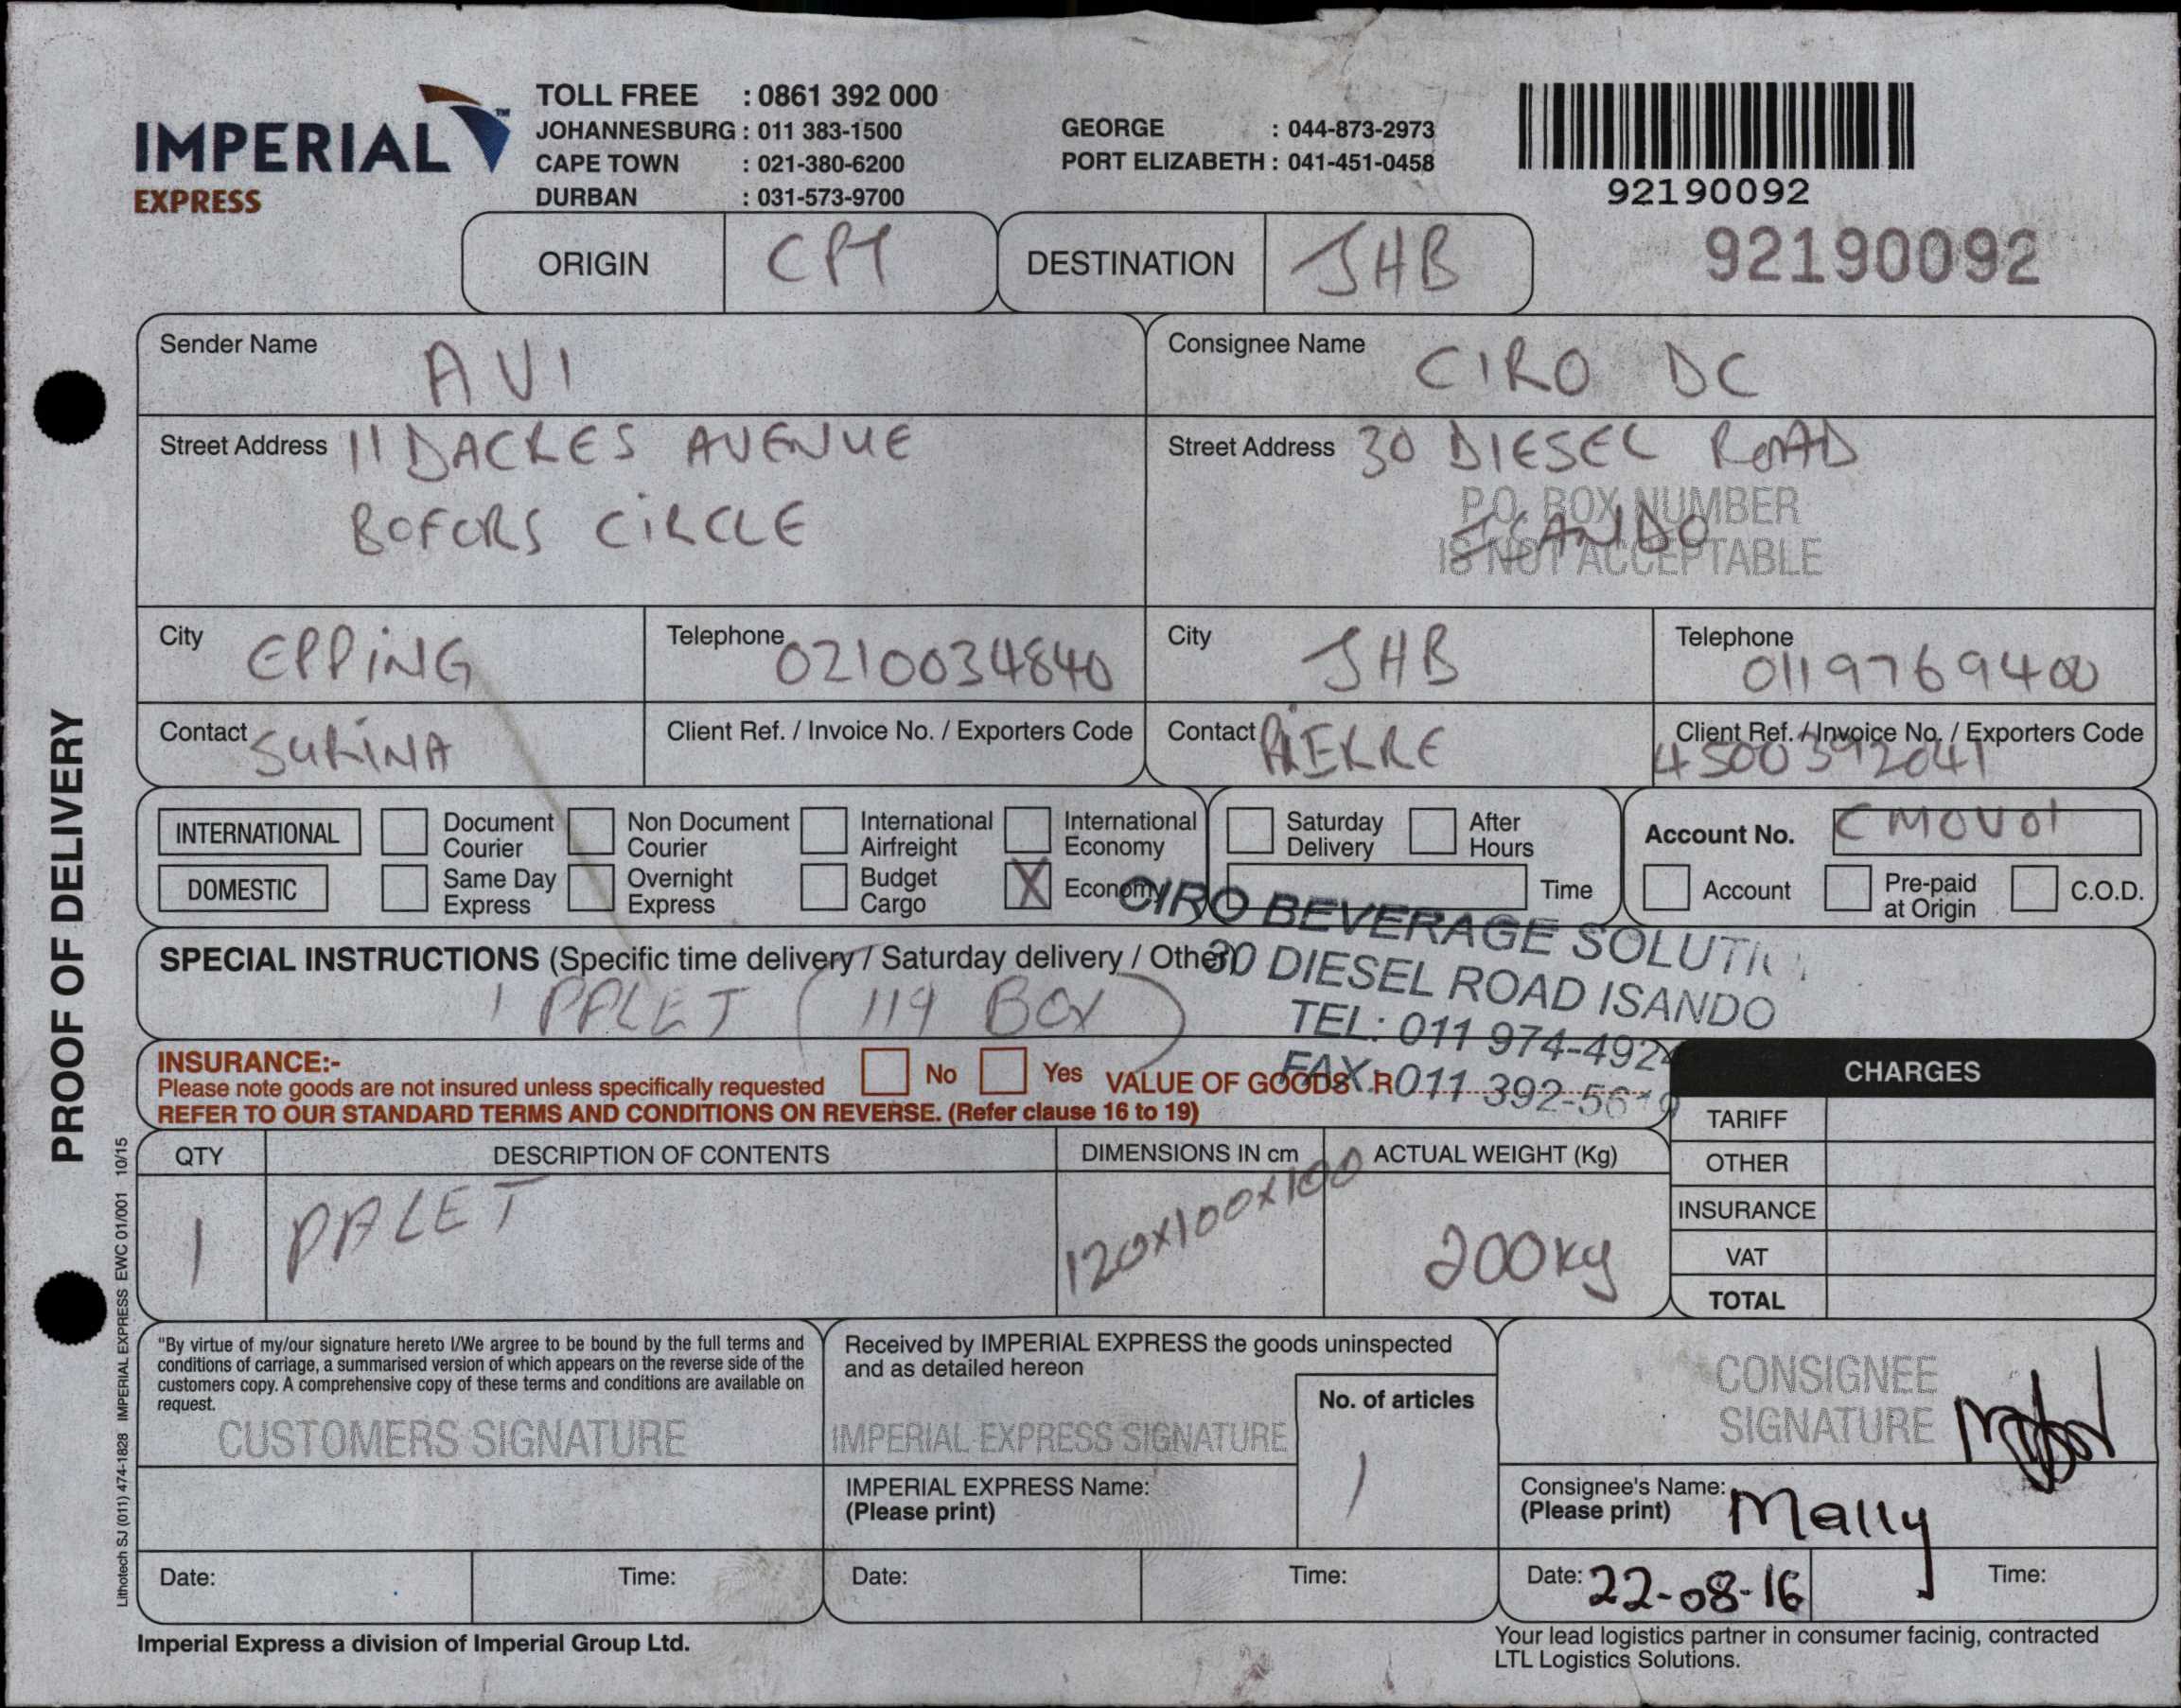 IMPERIAL™
EXPRESS
TOLL FREE : 0861 392 000
JOHANNESBURG : 011 383-1500
CAPE TOWN : 021-380-6200
DURBAN : 031-573-9700
GEORGE : 044-873-2973
PORT ELIZABETH : 041-451-0458
92190092
92190092
ORIGIN CPT DESTINATION JHB
Sender Name AVI
Consignee Name CIRO DC
Street Address 11 DACRES AVENUE
BOFORS CIRCLE
Street Address 30 DIESEL ROAD
P.O. BOX NUMBER
ISANDO
IS NOT ACCEPTABLE
City EPPING Telephone 0210034840
City JHB Telephone 0119769400
Contact SURINA Client Ref. / Invoice No. / Exporters Code
Contact PIERRE Client Ref. / Invoice No. / Exporters Code
4500392041
INTERNATIONAL Document Courier Non Document Courier International Airfreight International Economy
DOMESTIC Same Day Express Overnight Express Budget Cargo X Economy
Saturday Delivery After Hours
Time
Account No. CMOV01
Account Pre-paid at Origin C.O.D.
SPECIAL INSTRUCTIONS (Specific time delivery / Saturday delivery / Other)
1 PALET (119 BOX)
CIRO BEVERAGE
30 DIESEL ROAD ISANDO
TEL: 011 974-4924
FAX: 011
INSURANCE:-
Please note goods are not insured unless specifically requested No Yes VALUE OF GOODS R
REFER TO OUR STANDARD TERMS AND CONDITIONS ON REVERSE. (Refer clause 16 to 19)
CHARGES
TARIFF
OTHER
INSURANCE
VAT
TOTAL
QTY DESCRIPTION OF CONTENTS DIMENSIONS IN cm ACTUAL WEIGHT (Kg)
1 PALET 120x100x100 200kg
"By virtue of my/our signature hereto I/We argree to be bound by the full terms and
conditions of carriage, a summarised version of which appears on the reverse side of the
customers copy. A comprehensive copy of these terms and conditions are available on
request.
CUSTOMERS SIGNATURE
Date: Time:
Received by IMPERIAL EXPRESS the goods uninspected
and as detailed hereon
No. of articles
1
IMPERIAL EXPRESS SIGNATURE
IMPERIAL EXPRESS Name:
(Please print)
Date: Time:
CONSIGNEE
SIGNATURE
Consignee's Name:
(Please print) Mally
Date: 22-08-16 Time:
Imperial Express a division of Imperial Group Ltd.
Your lead logistics partner in consumer facinig, contracted
LTL Logistics Solutions.
PROOF OF DELIVERY
Lithotech SJ (011) 474-1828 IMPERIAL EXPRESS EWC 01/001 10/15